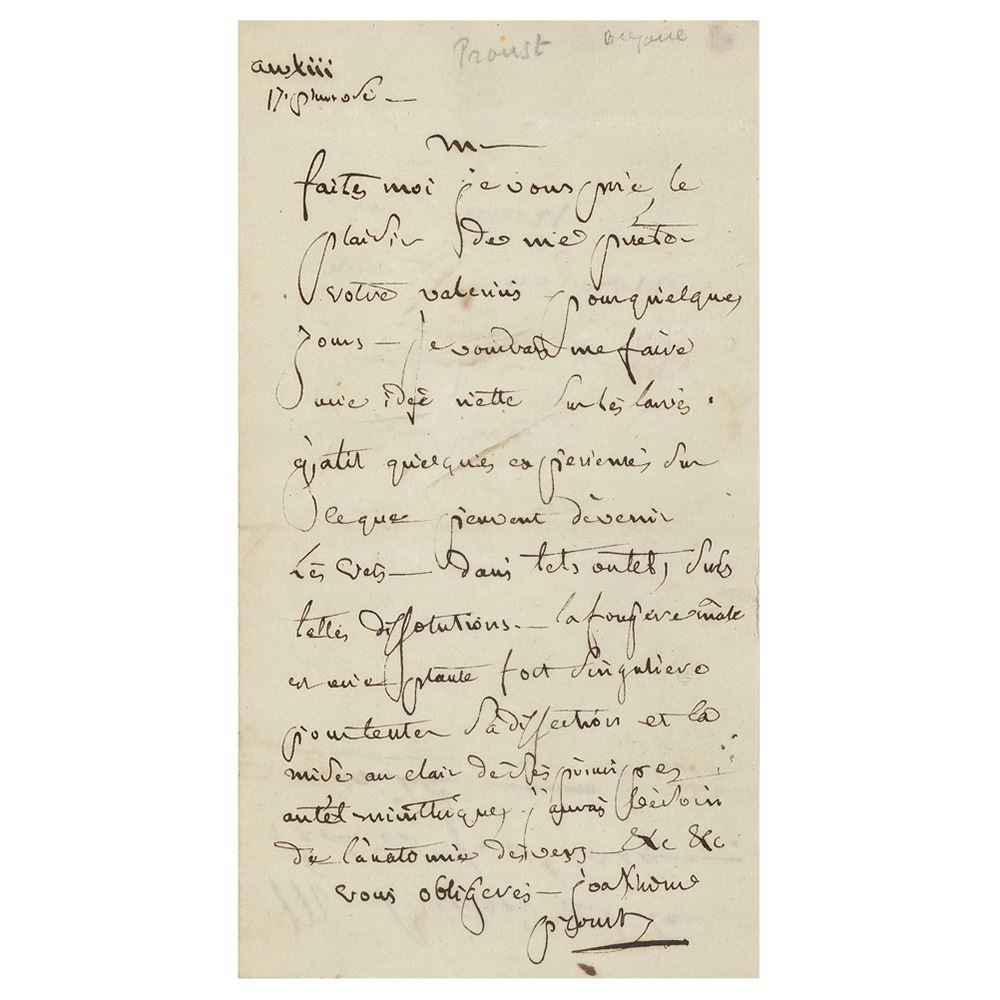 Proust
an xiii
17. pluviose —
M —
faites moi je vous prie le
plaisir de me preter
votre valerius pour quelques
jours — je voudrais me faire
une idée nette sur les larves.
quelques experiences sur
le que peuvent dévenir
Les vers — dans tels ou tels sucs
telles dissolutions. — la fougere mâle
est une plante fort singuliere
pour tenter sa dissection et la
mise au clair de ses principes
antelminthiques. j'aurais besoin
de l'anatomie des vers — &c &c
vous obligerés — joakhime
proust